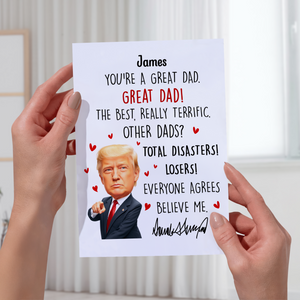 James
YOU'RE A GREAT DAD.
GREAT DAD!
THE BEST, REALLY TERRIFIC.
OTHER DADS?
TOTAL DISASTERS!
LOSERS!
EVERYONE AGREES
BELIEVE ME.